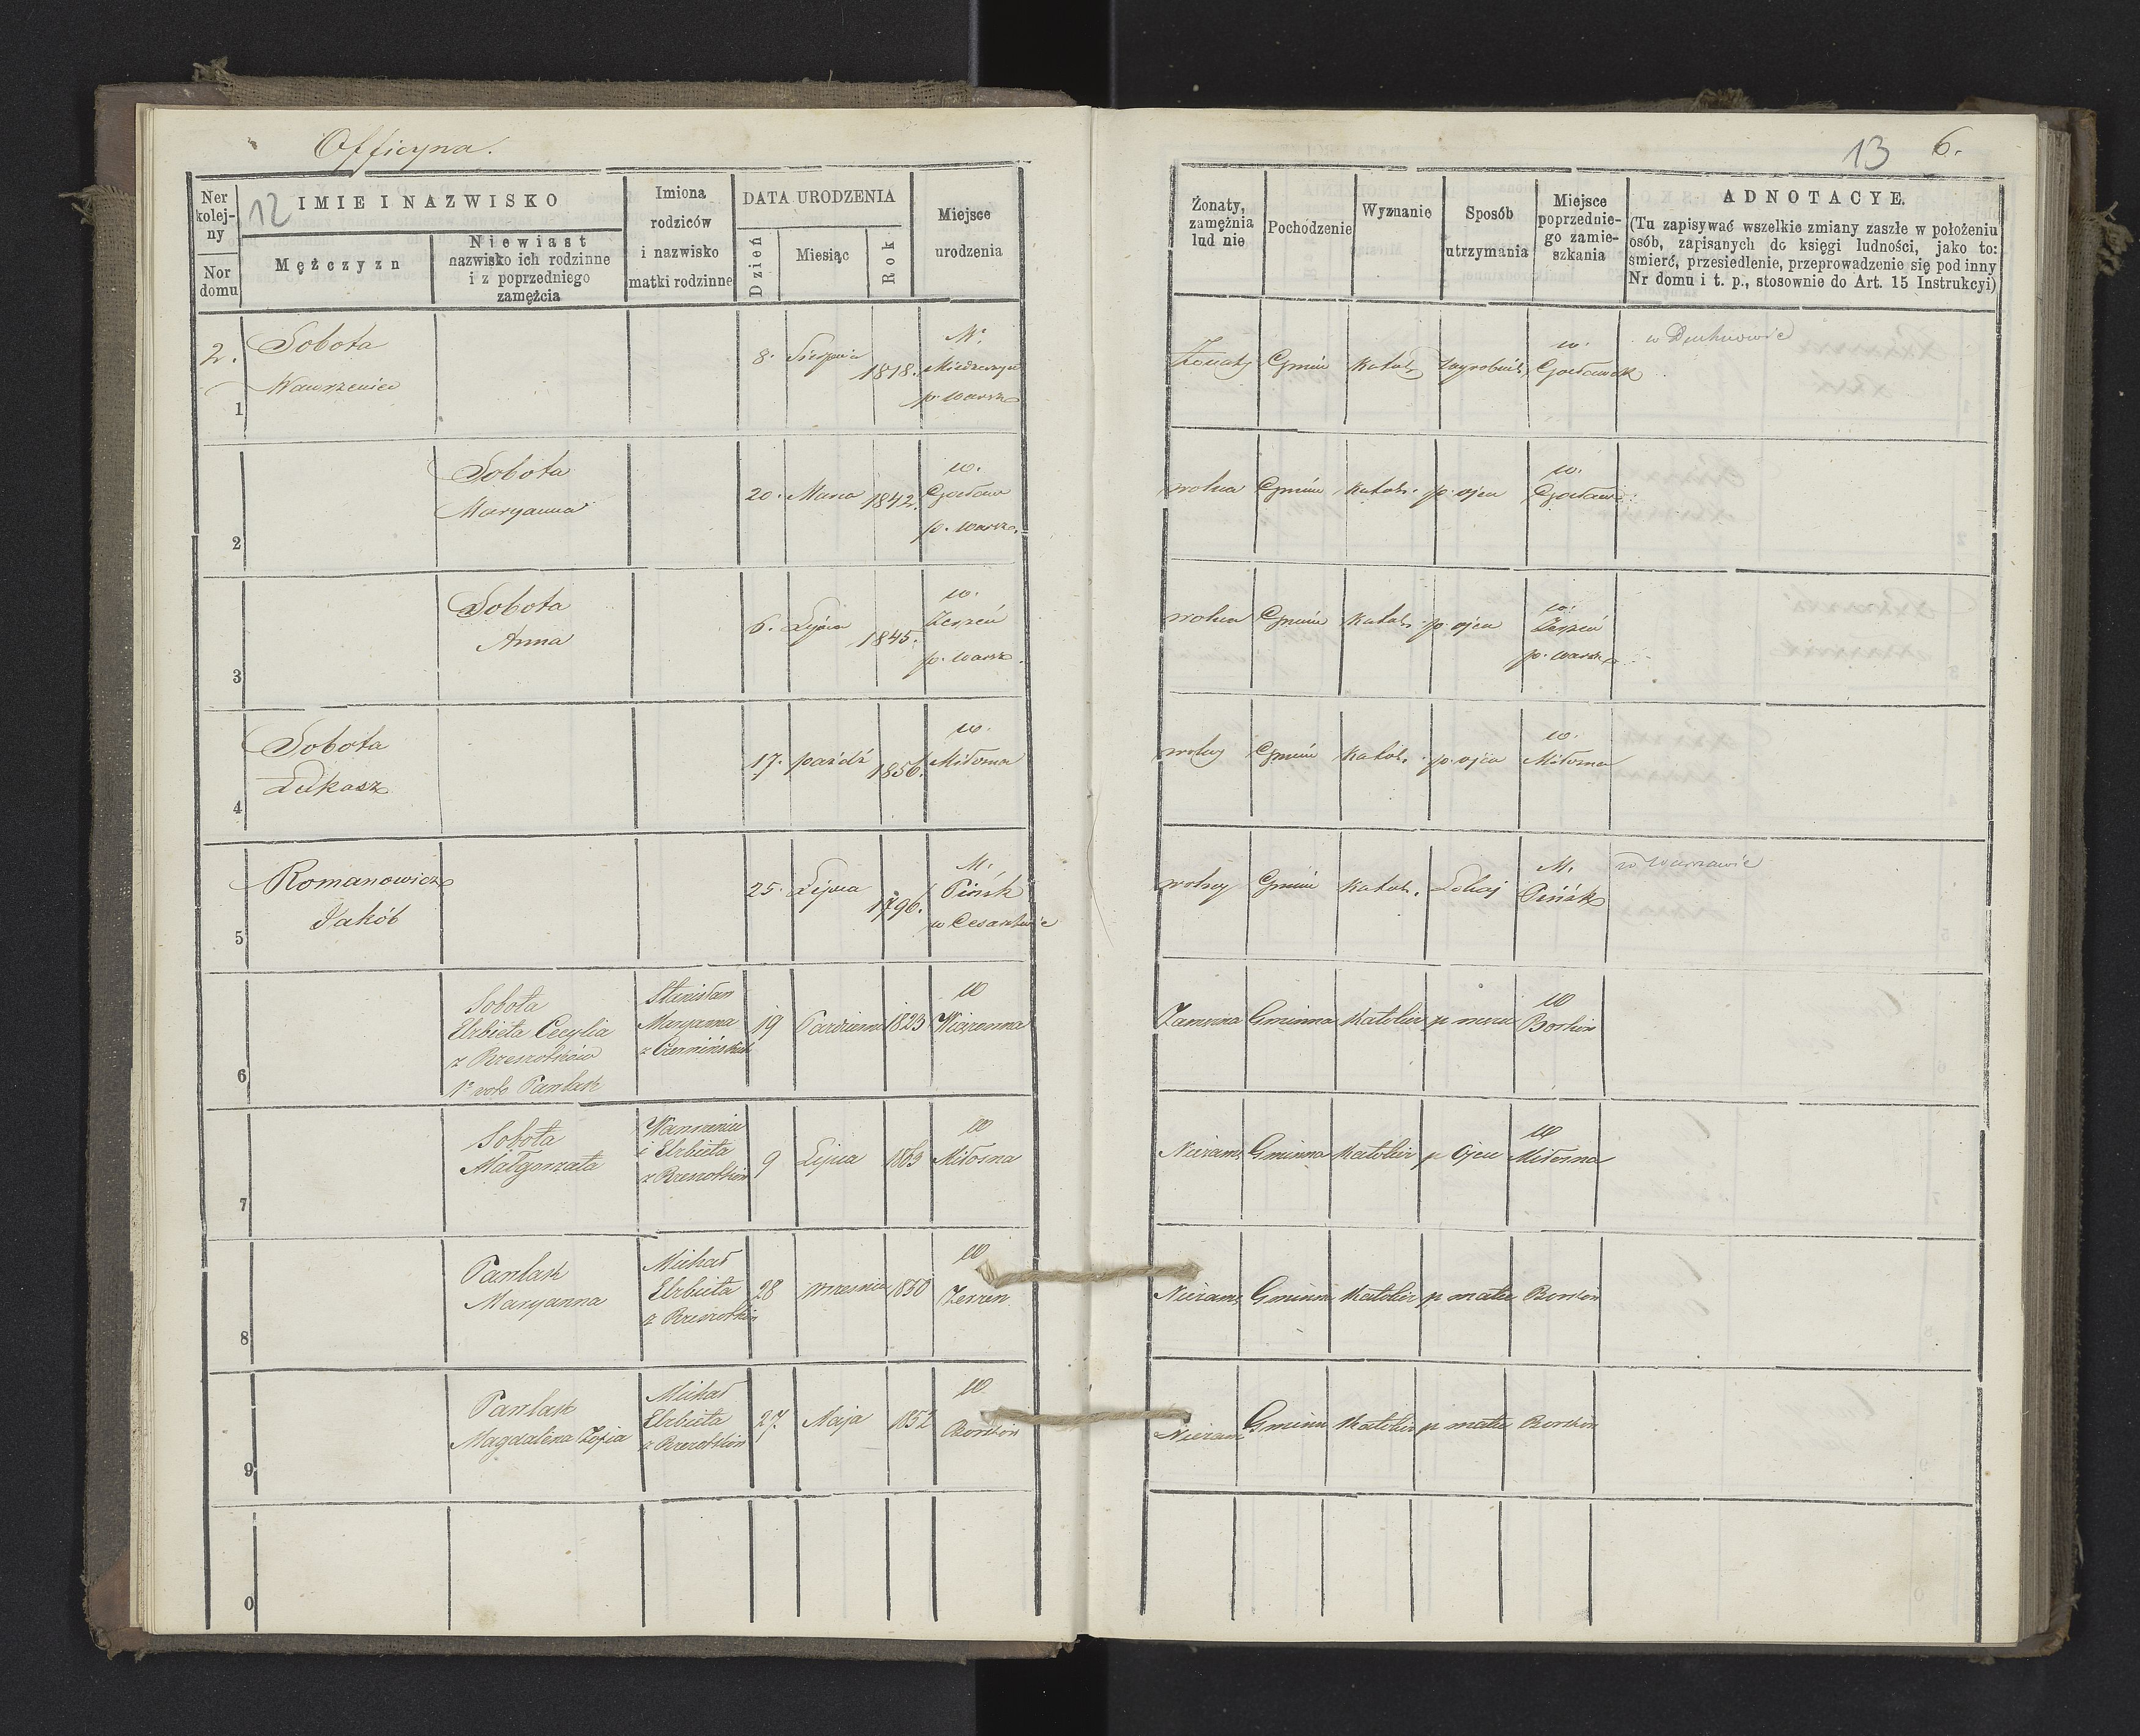 Officyna.
12
Ner kolejny
Nor domu
IMIE I NAZWISKO
Mężczyzn
Niewiast
nazwisko ich rodzinne
i z poprzedniego
zamężcia
Imiona
rodziców
i nazwisko
matki rodzinne
DATA URODZENIA
Dzień
Miesiąc
Rok
Miejsce
urodzenia
2.
1
Sobota
Wawrzeniec
8. Sierpnia 1818.
M.
p. Warsz
2
Sobota
Maryanna
20. Marca 1842.
w.
Gocław
p. Warsz.
3
Sobota
Anna
6. Lipca 1845.
w.
Zerzeń
p. Warsz.
4
Sobota
Łukasz
17. paźdź 1856.
w.
Miłosna
5
Romanowicz
Jakób
25. Lipca 1796.
M.
Pińsk
w Cesarstwie
6
Sobota
Elzbieta Cecylia
z Brzezotków
1o voto Pawlask
Stanisław
Maryanna
19 1823
w
Wiązowna
7
Sobota
Małgorzata
Wawrzeniec
i Elzbieta
9 Lipca 1863
w
Miłosna
8
Pawlask
Maryanna
Michał
Elzbieta
28 wrzesnia 1850
w
Zerzen
9
Pawlask
Magdalena Zofia
Michał
Elzbieta
27 Maja 1852
w
Borków
0
13 6.
Żonaty,
zamężnia
lud nie
Pochodzenie
Wyznanie
Sposób
utrzymania
Miejsce
poprzednie-
go zamie-
szkania
ADNOTACYE.
(Tu zapisywać wszelkie zmiany zaszłe w położeniu
osób, zapisanych do księgi ludności, jako to:
śmierć, przesiedlenie, przeprowadzenie się pod inny
Nr domu i t. p., stosownie do Art. 15 Instrukcyi)
Żonaty Gmin Katol. wyrobnik
w.
Gocławek
w Duchnowie
wolna Gmin Katol. p. ojcu
w.
Gocław
wolna Gmin Katol. p. ojcu
w.
Zerzeń
p. Warsz.
wolny Gmin Katol. p. ojcu
w.
Miłosna
wolny Gmin Katol. Lokaj
M.
Pińsk
w Warszawie
Zamezna Gminna Katolic p mezu
w
Borków
Niezam. Gminna Katolic p Ojcu
w
Miłosna
Niezam. Gminna Katolic p matce Borków
Niezam Gminna Katolic p matce Borków